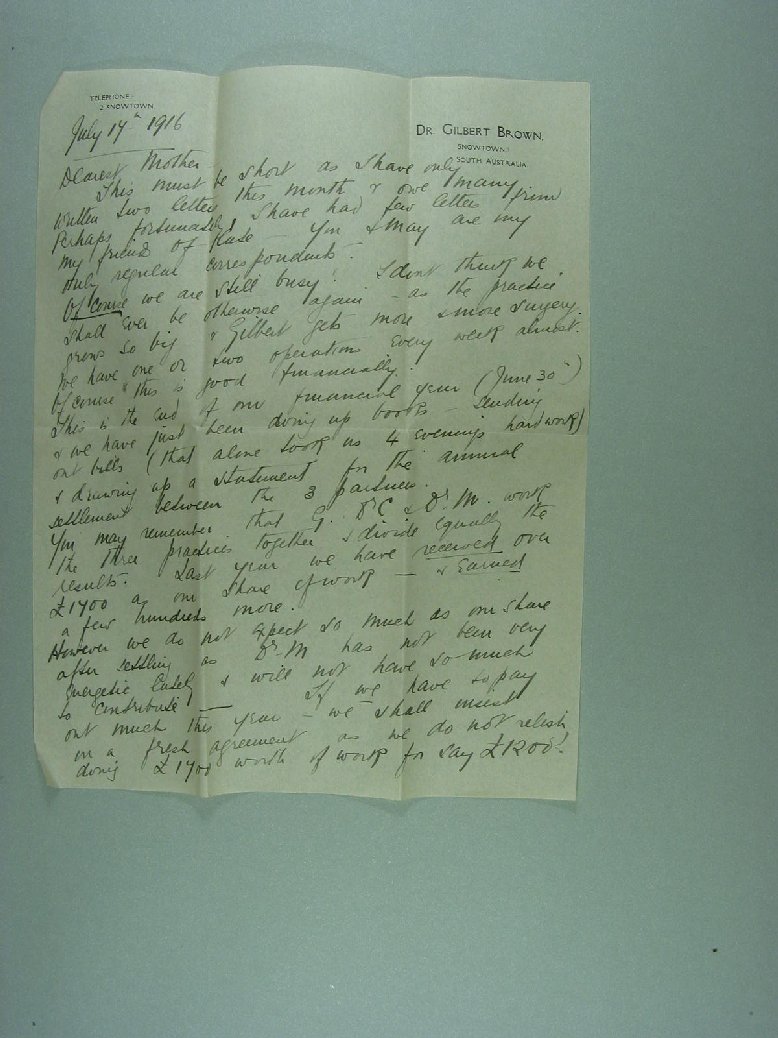 TELEPHONE:
2 SNOWTOWN
DR. GILBERT BROWN.
SNOWTOWN,
SOUTH AUSTRALIA
July 17th 1916
Dearest Mother
This must be short as I have only
written two letters this month & owe many
Perhaps fortunately I have had few letters from
my friends of late. You & May are my
only regular correspondents.
Of course we are still busy! I dont think we
shall ever be otherwise again — as the practice
grows so big & Gilbert gets more & more surgery.
We have one or two operations every week almost.
Of course this is good financially.
This is the end of our financial year (June 30th)
& we have just been doing up books — sending
out bills (that alone took us 4 evenings hard work)
& drawing up a statement for the annual
settlement between the 3 partners.
You may remember that G. Dr C & Dr M. work
the three practices together & divide equally the
results. Last year we have received over
£1700 as our share of work — & Earned
a few hundreds more.
However we do not expect so much as our share
after settling as Dr M has not been very
energetic lately & will not have so much
to contribute — If we have to pay
out much this year — we shall insist
on a fresh agreement as we do not relish
doing £1700 worth of work for say £1200!